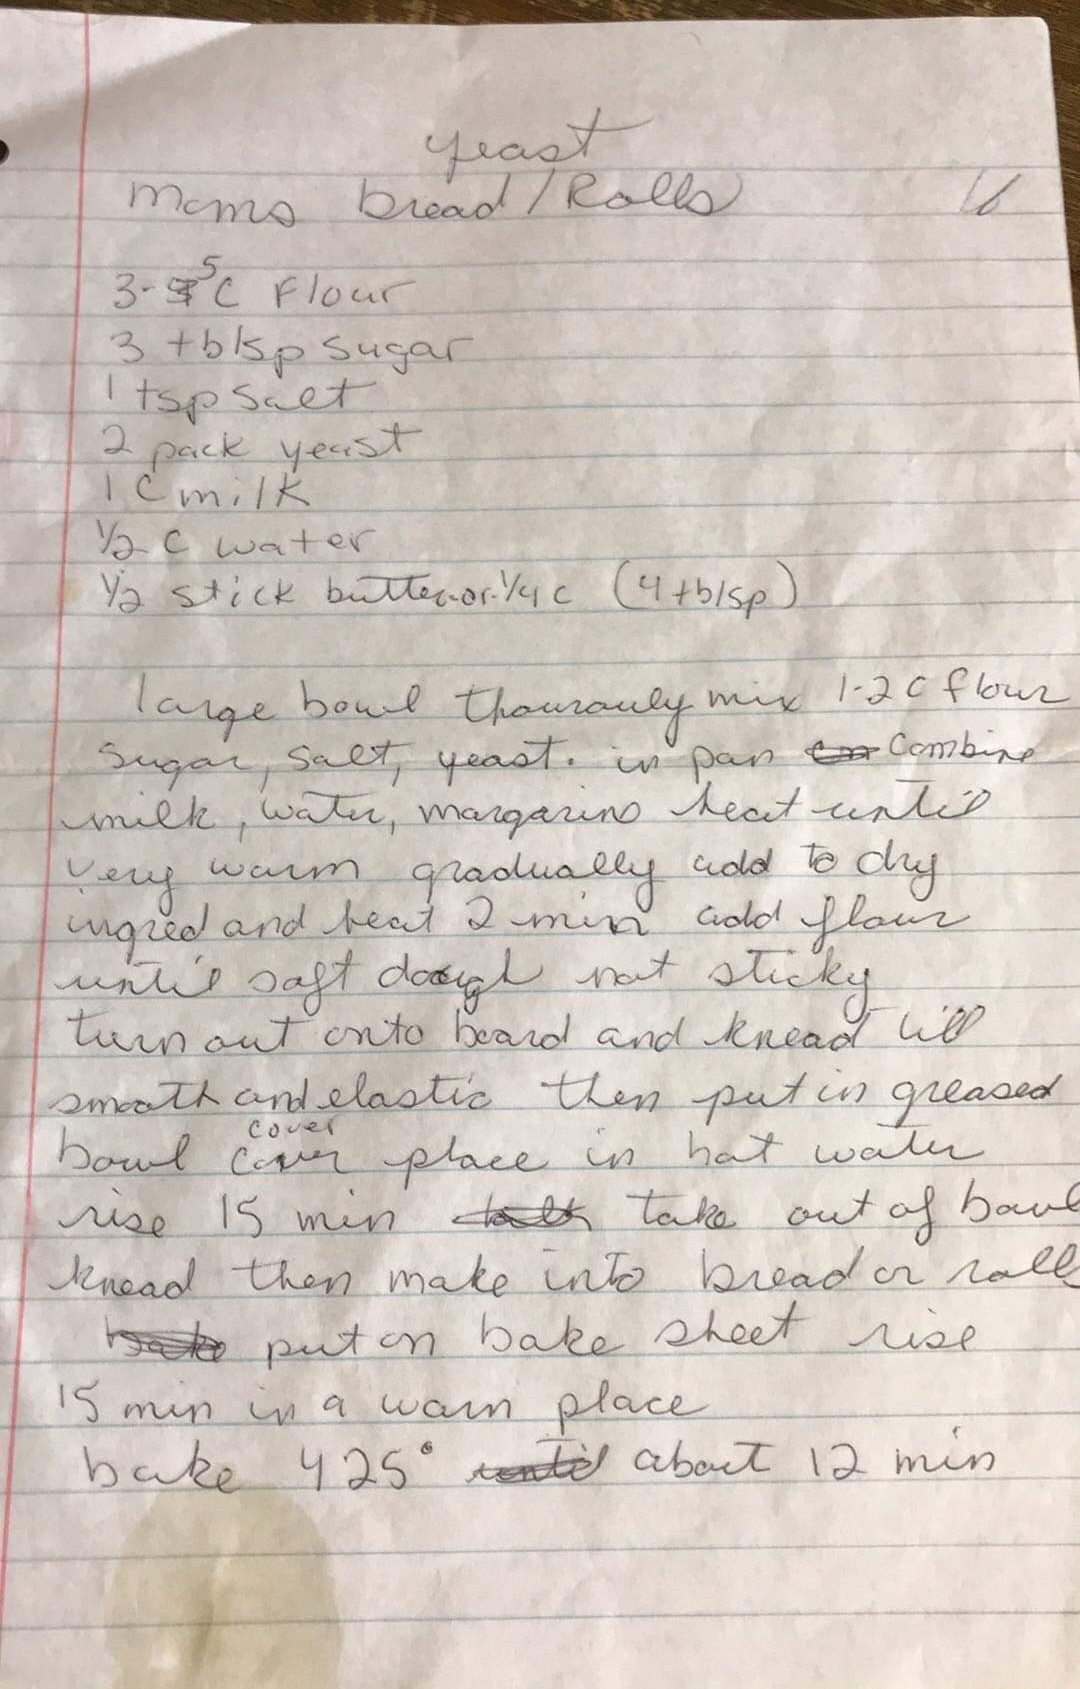 yeast
Moms bread/Rolls 16
3-5 C Flour
3 tblsp sugar
1 tsp salt
2 pack yeast
1 C milk
1/2 C water
1/2 stick butter-or-1/4 c (4 tblsp)
large bowl thourouly mix 1-2 C flour
sugar, salt, yeast. in pan Combine
milk, water, margarine heat until
very warm gradually add to dry
ingred and beat 2 min add flour
until soft dough not sticky
turn out onto board and knead till
smooth and elastic then put in greased
cover
bowl cover place in hot water
rise 15 min take out of bowl
knead then make into bread or rolls
put on bake sheet rise
15 min in a warm place
bake 425° about 12 min